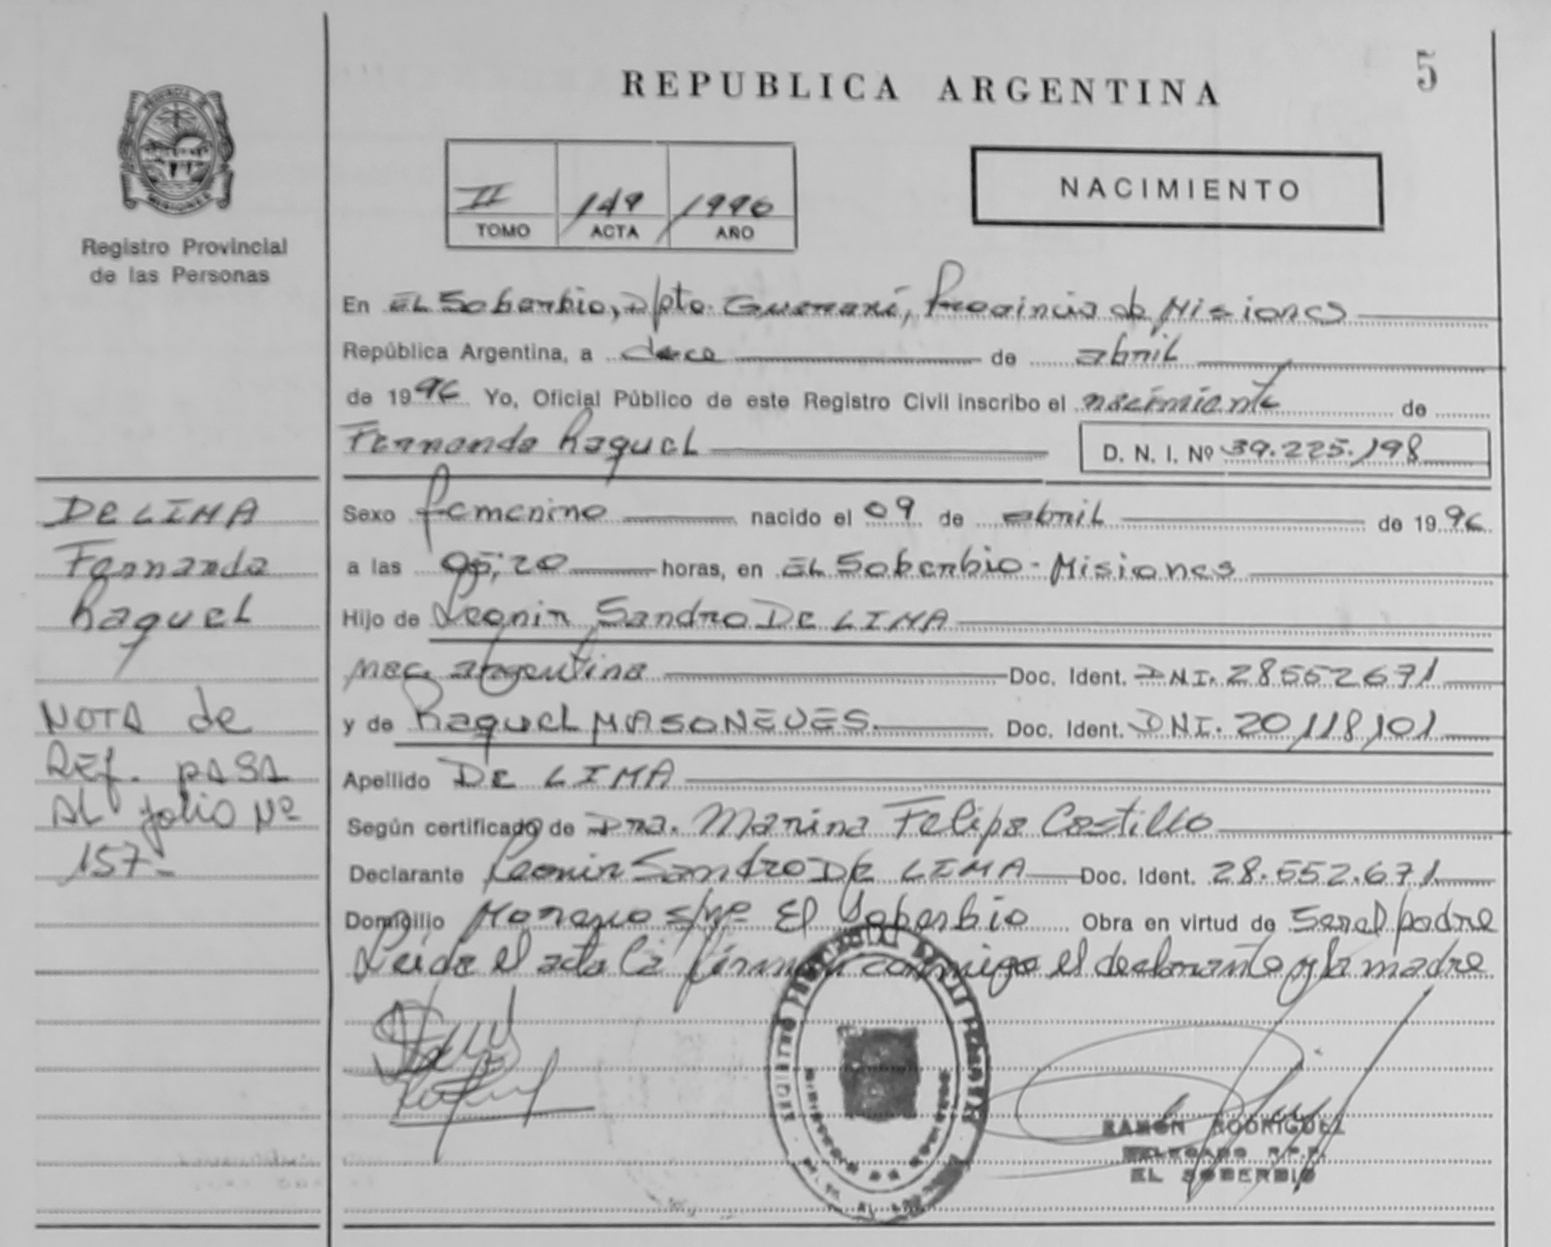 5
REPUBLICA ARGENTINA
Registro Provincial
de las Personas
II 149 1996
TOMO ACTA AÑO
NACIMIENTO
En EL Soberbio, Dpto. Guaraní, Provincia de Misiones
República Argentina, a doce de abril
de 1996 Yo, Oficial Público de este Registro Civil inscribo el nacimiento de
Fernanda Raquel D. N. I. Nº 39.225.198
Sexo femenino nacido el 09 de abril de 1996
a las 05,20 horas, en EL Soberbio - Misiones
Hijo de Leonir Sandro De LIMA
nac. argentina Doc. Ident. DNI. 28552671
y de Raquel MASONEVES. Doc. Ident. DNI. 20,118,101
Apellido De LIMA
Según certificado de Dra. Marina Felipa Castillo
Declarante Leonir Sandro De LIMA Doc. Ident. 28.552.671
Domicilio s/nº El Soberbio Obra en virtud de Ser el padre
Leída el acta la firman conmigo el declarante y la madre
DE LIMA
Fernanda
Raquel
NOTA de
Ref. PASA
AL folio Nº
157-
RAMÓN RODRIGUEZ
DELEGADO R.P.P.
EL SOBERBIO